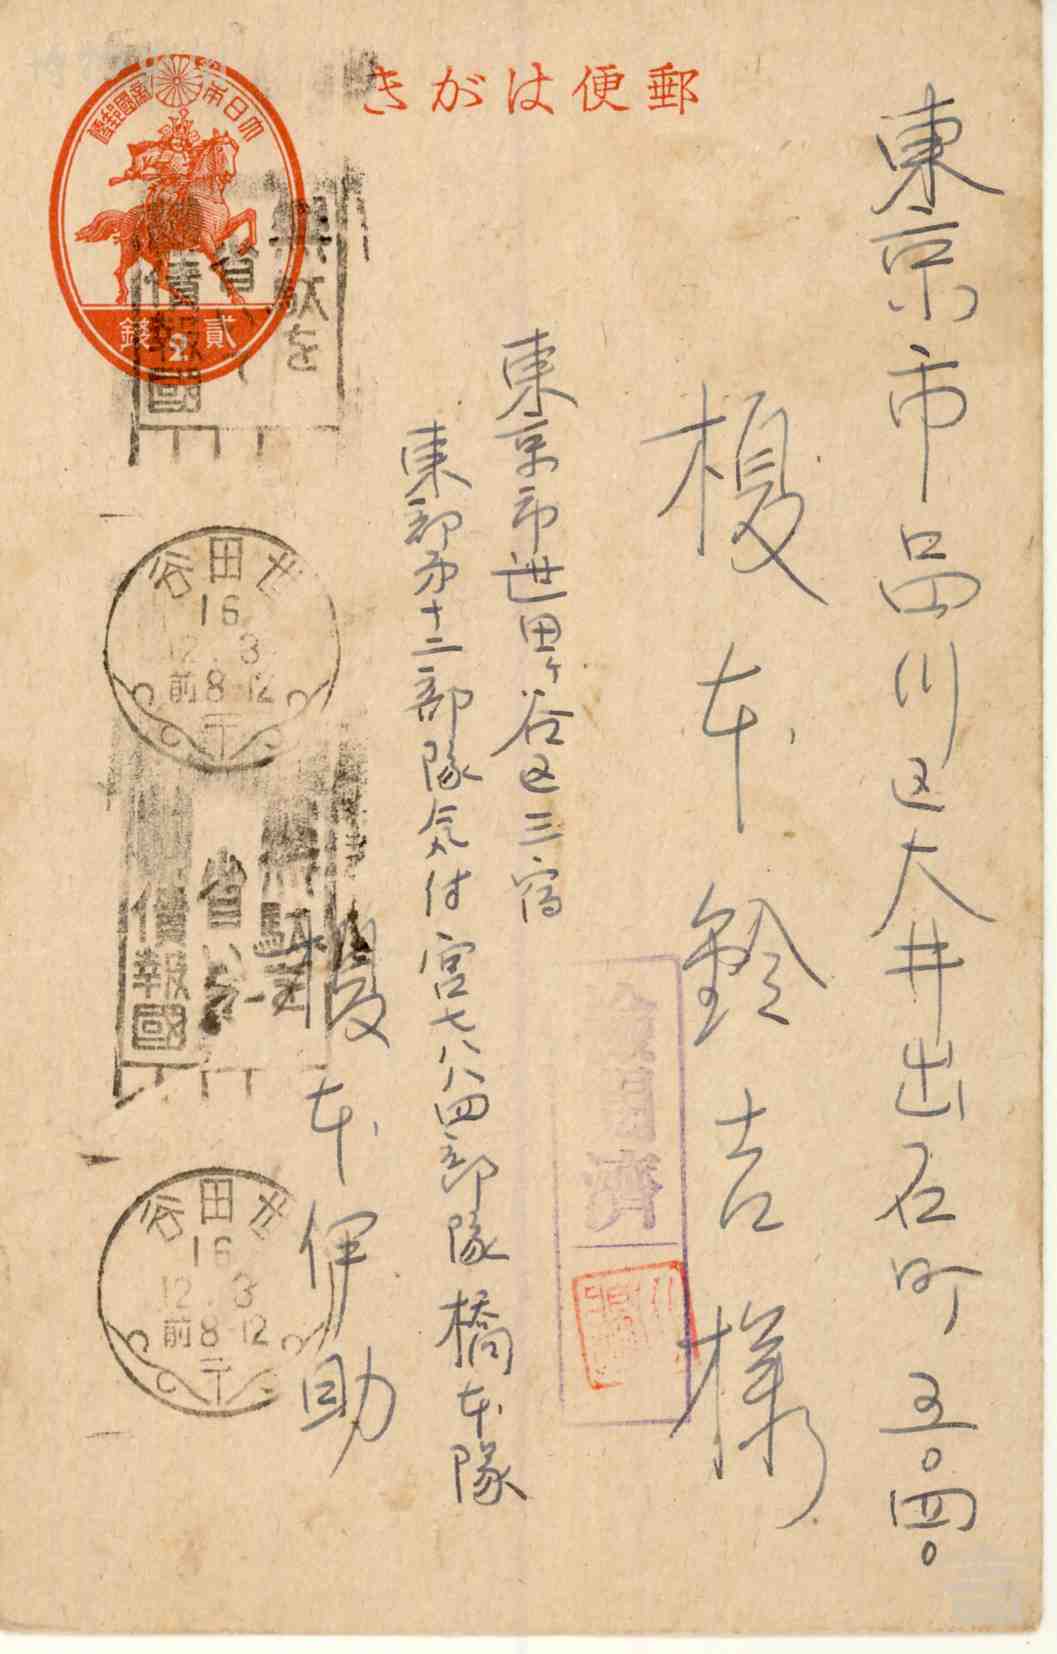 郵便はがき
大日本帝國郵便
貳錢
2
東京市品川区大井出石町五〇四〇
榎本鈴吉様
東京市世田ヶ谷区三宿
東部第十二部隊気付宮七八八四部隊橋本隊
榎本伊助
無駄を
省いて
債報國
世田谷
16
12.3
前8-12
無駄を
省いて
債報國
世田谷
16
12.3
前8-12
濟